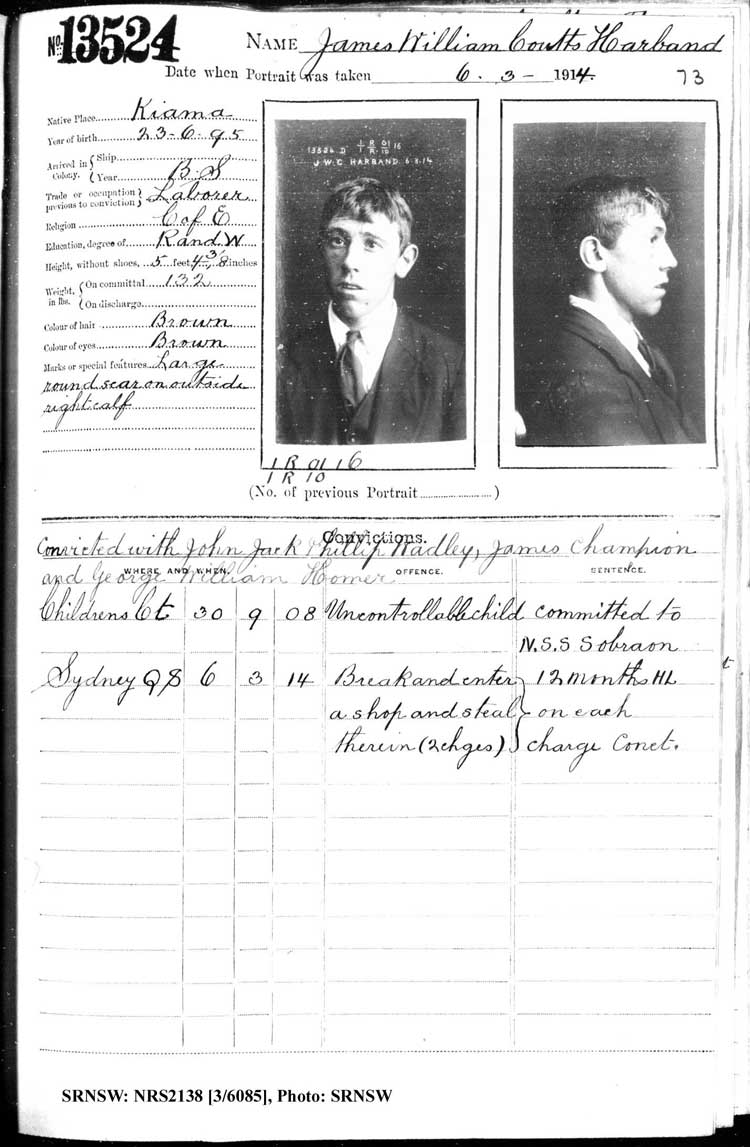 No. 13524
NAME James William Coutts Harband
Date when Portrait was taken 6. 3 - 1914.
73
Native Place Kiama
Year of birth 23-6-95
Arrived in Colony. { Ship
Year B.S
Trade or occupation previous to conviction } Laborer
Religion C of E
Education, degree of R and W
Height, without shoes 5 feet 4 3/8 inches
Weight, in lbs. { On committal 132
On discharge
Colour of hair Brown
Colour of eyes Brown
Marks or special features Large
round scar on outside
right calf
13524 D 1 R 01 16
1 R 10
J.W.C HARBAND. 6.3.14
1 R 01 16
1 R 10
(No. of previous Portrait )
Convictions.
Convicted with John Jack Phillip Hadley, James Champion
and George William Homer
WHERE AND WHEN. OFFENCE. SENTENCE.
Childrens Ct 30 9 08 Uncontrollable child committed to
N.S.S Sobraon
Sydney Q S 6 3 14 Break and enter 12 months HL
a shop and steal on each
therein (2 chges) charge Conct.
SRNSW: NRS2138 [3/6085], Photo: SRNSW